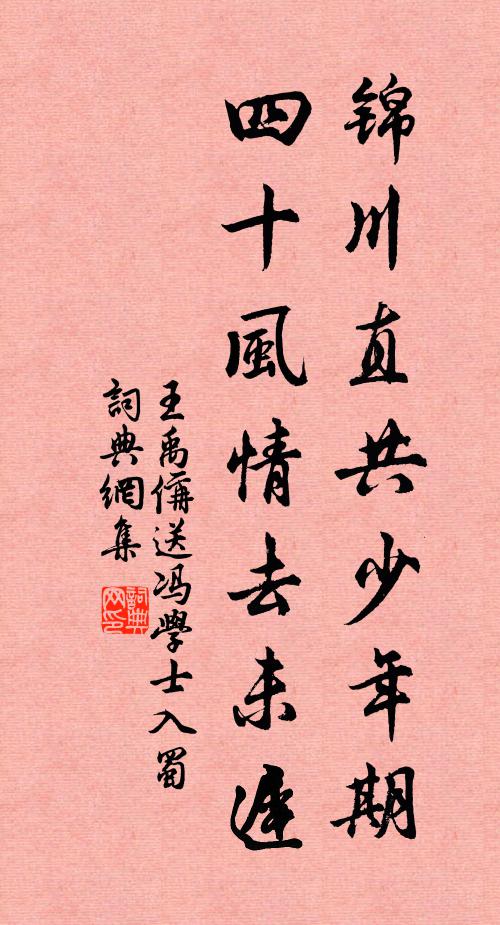 锦川直共少年期
四十風情去未遲
王禹偁送冯學士入蜀
詞典網集
詞典网印